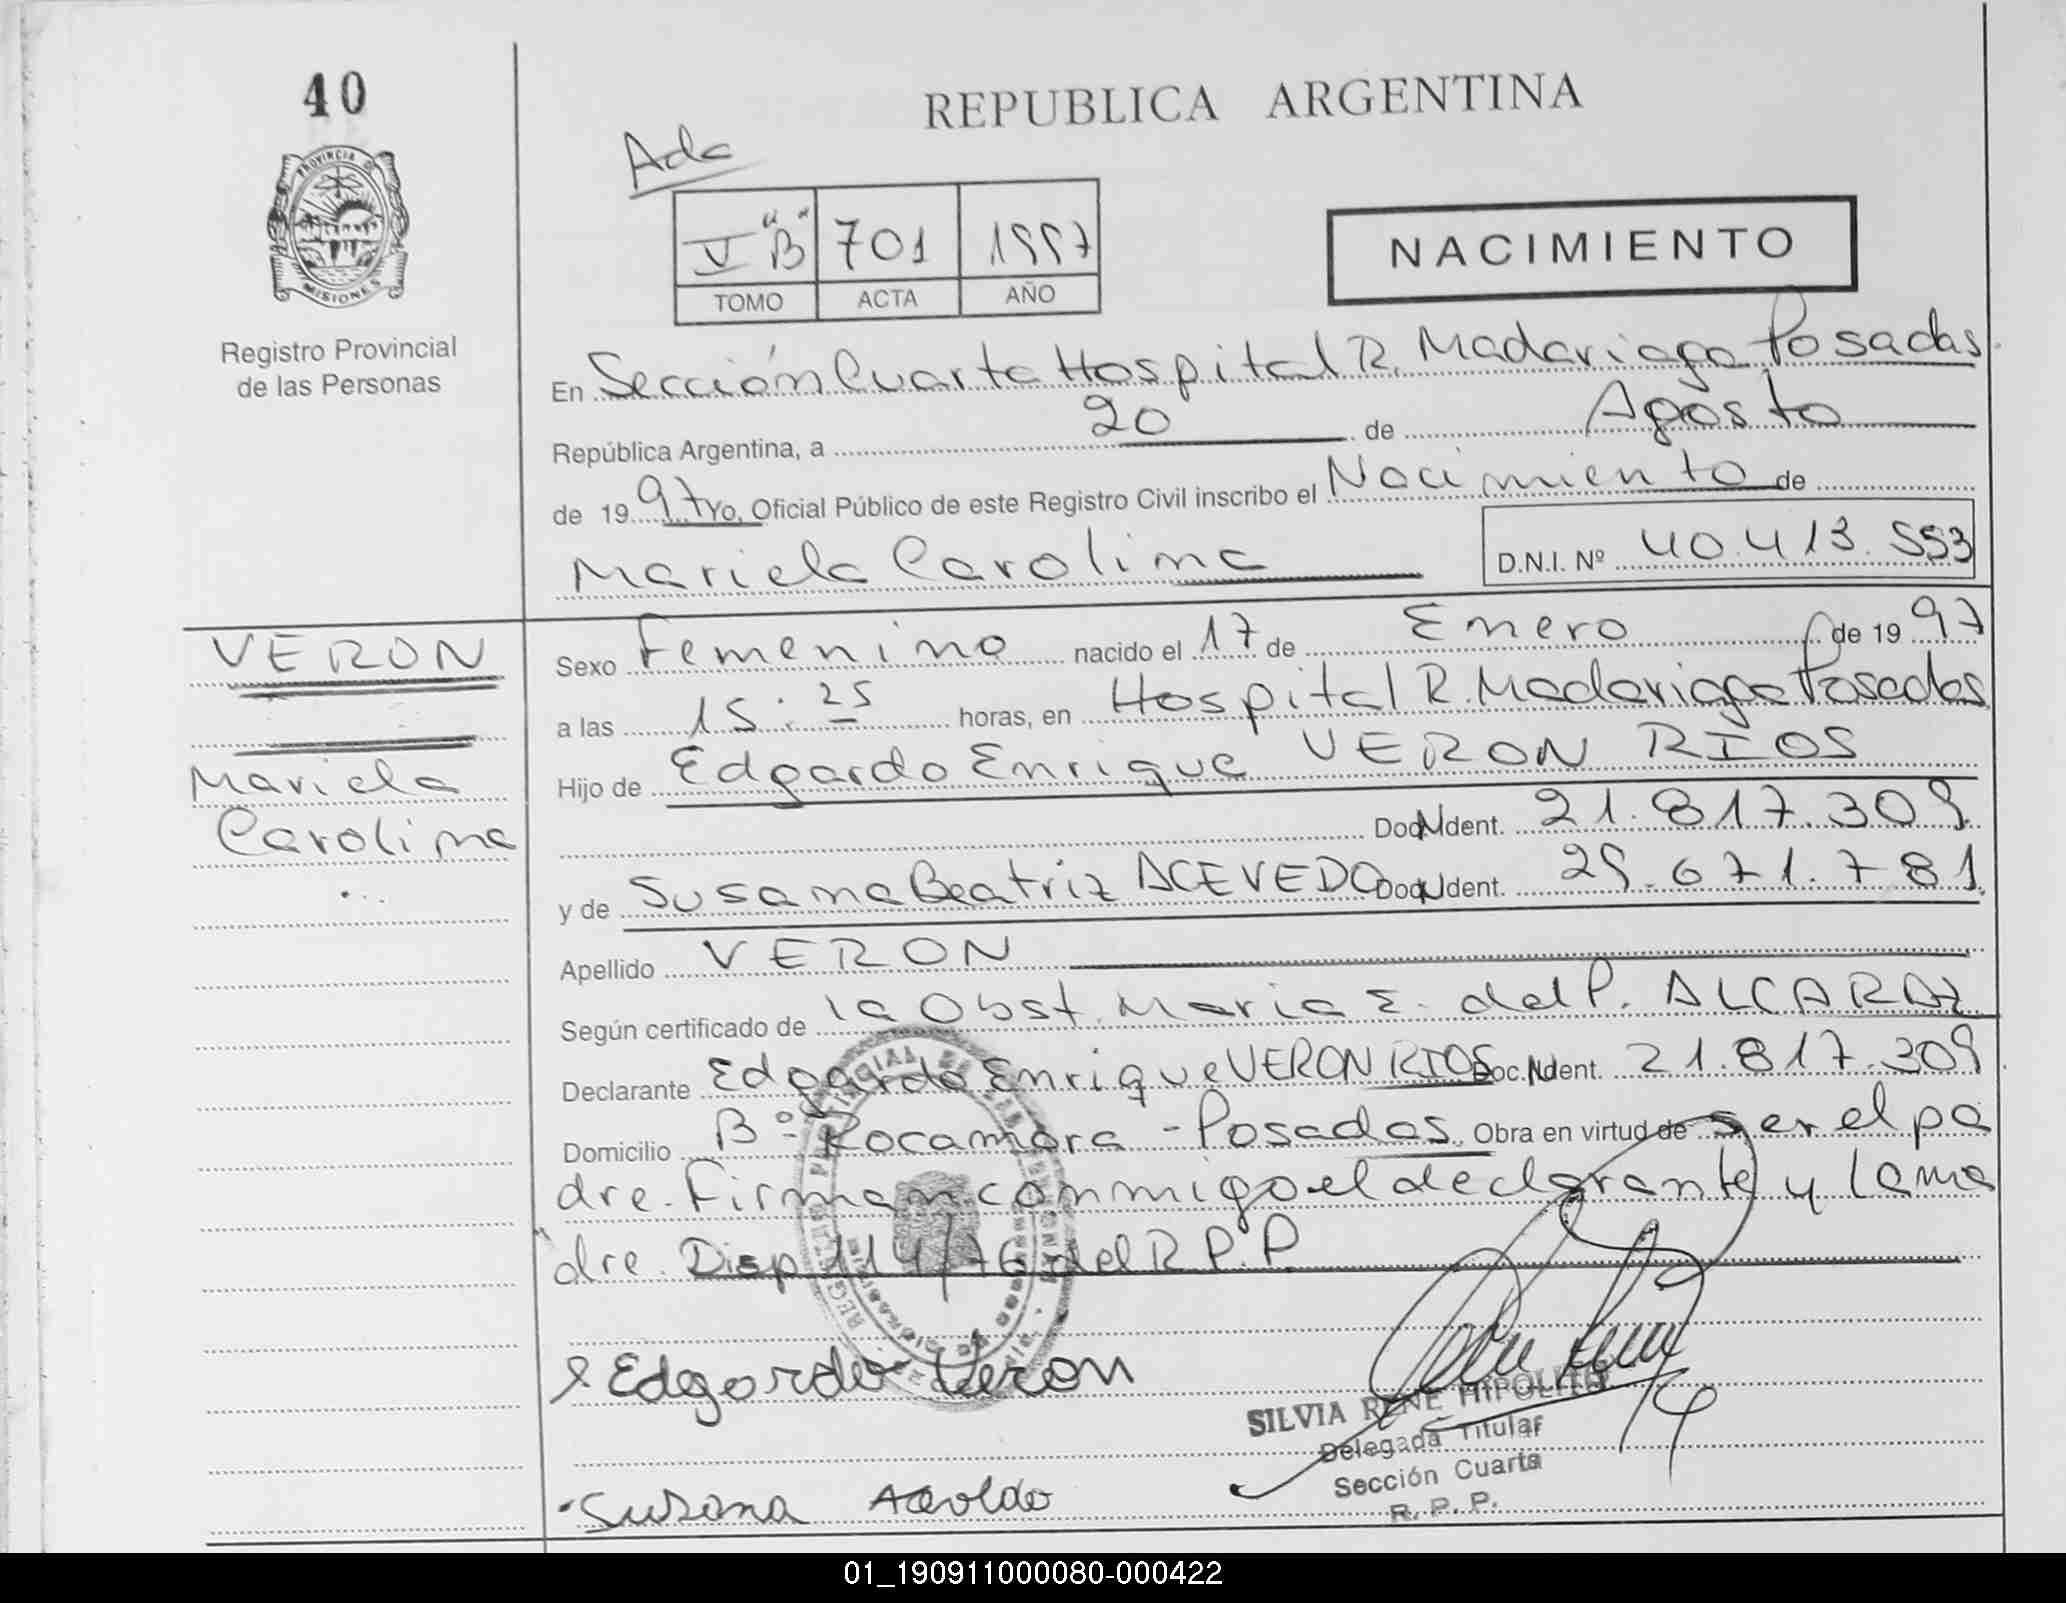 40
PROVINCIA DE
MISIONES
Registro Provincial
de las Personas
REPUBLICA ARGENTINA
Ada
V "B" 701 1997
TOMO ACTA AÑO
NACIMIENTO
En Sección Cuarta Hospital R. Madariaga Posadas.
República Argentina, a 20 de Agosto
de 1997 Yo, Oficial Público de este Registro Civil inscribo el Nacimiento de
Mariela Carolina
D.N.I. Nº 40.413.553
VERON
Mariela
Carolina
Sexo Femenino nacido el 17 de Enero de 1997
a las 15:25 horas, en Hospital R. Madariaga Posadas
Hijo de Edgardo Enrique VERON RIOS
Doc. Ident. 21.817.309
y de Susana Beatriz ACEVEDO Doc. Ident. 29.671.781
Apellido VERON
Según certificado de la Obst. Maria E. del P. ALCARAZ
Declarante Edgardo Enrique VERON RIOS Doc. Ident. 21.817.309
Domicilio Bº Rocamora - Posadas. Obra en virtud de ser el pa
dre. Firman conmigo el declarante y la ma
dre. Disp 114/76 del R.P.P.
Edgardo Veron
Susana
SILVIA RENE HIPOLITO
Delegada Titular
Sección Cuarta
R. P. P.
01_190911000080-000422